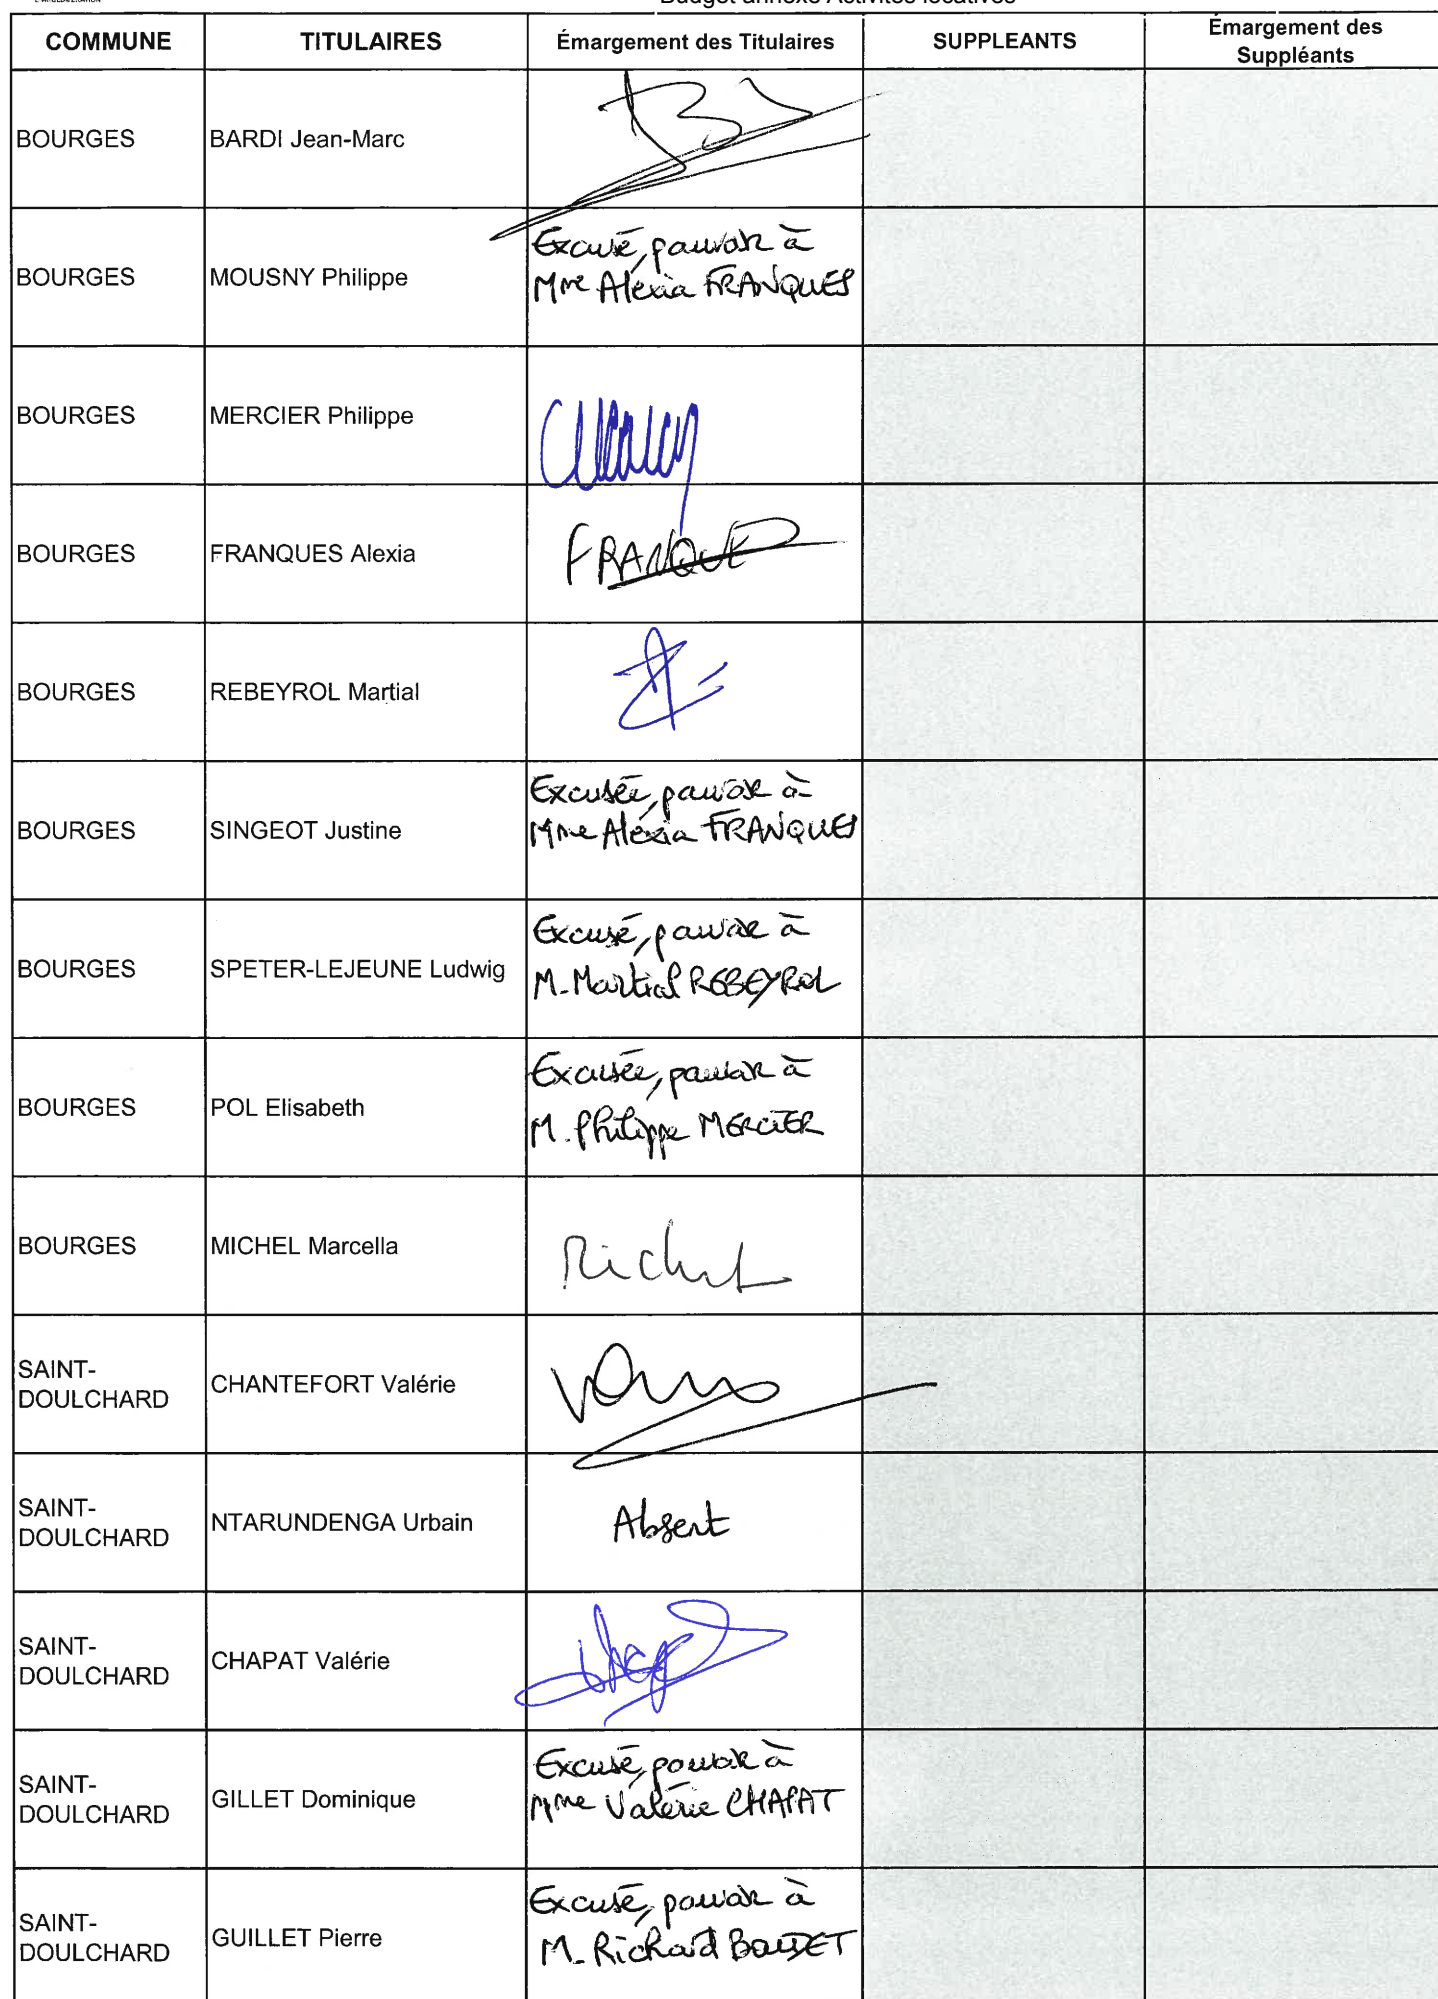 Budget annexe Activités locatives
COMMUNE TITULAIRES Émargement des Titulaires SUPPLEANTS Émargement des Suppléants
BOURGES BARDI Jean-Marc
BOURGES MOUSNY Philippe Excusé, pouvoir à
Mme Alexia FRANQUES
BOURGES MERCIER Philippe
BOURGES FRANQUES Alexia FRANQUES
BOURGES REBEYROL Martial
BOURGES SINGEOT Justine Excusée, pouvoir à
Mme Alexia FRANQUES
BOURGES SPETER-LEJEUNE Ludwig Excusé, pouvoir à
M. Martial REBEYROL
BOURGES POL Elisabeth Excusée, pouvoir à
M. Philippe MERCIER
BOURGES MICHEL Marcella
SAINT-
DOULCHARD CHANTEFORT Valérie
SAINT-
DOULCHARD NTARUNDENGA Urbain Absent
SAINT-
DOULCHARD CHAPAT Valérie
SAINT-
DOULCHARD GILLET Dominique Excusé, pouvoir à
Mme Valérie CHAPAT
SAINT-
DOULCHARD GUILLET Pierre Excusé, pouvoir à
M. Richard BOUDET